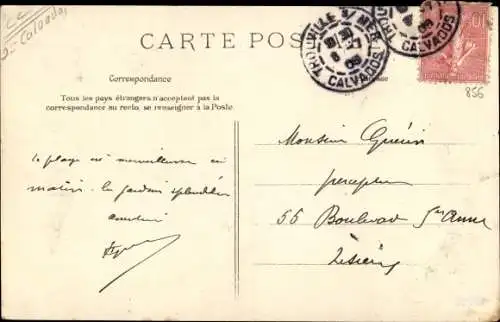 CC
2- Calvados
CARTE POS
TROUVILLE S/ MER
CALVADOS
CALVADOS
10
856
Correspondance
Tous les pays étrangers n'acceptent pas la
correspondance au recto, se renseigner à la Poste.
la plage est merveilleuse ce
matin. Les jardins splendides
Monsieur Guérin
percepteur
55 Boulevard Ste Anne
Lisieux